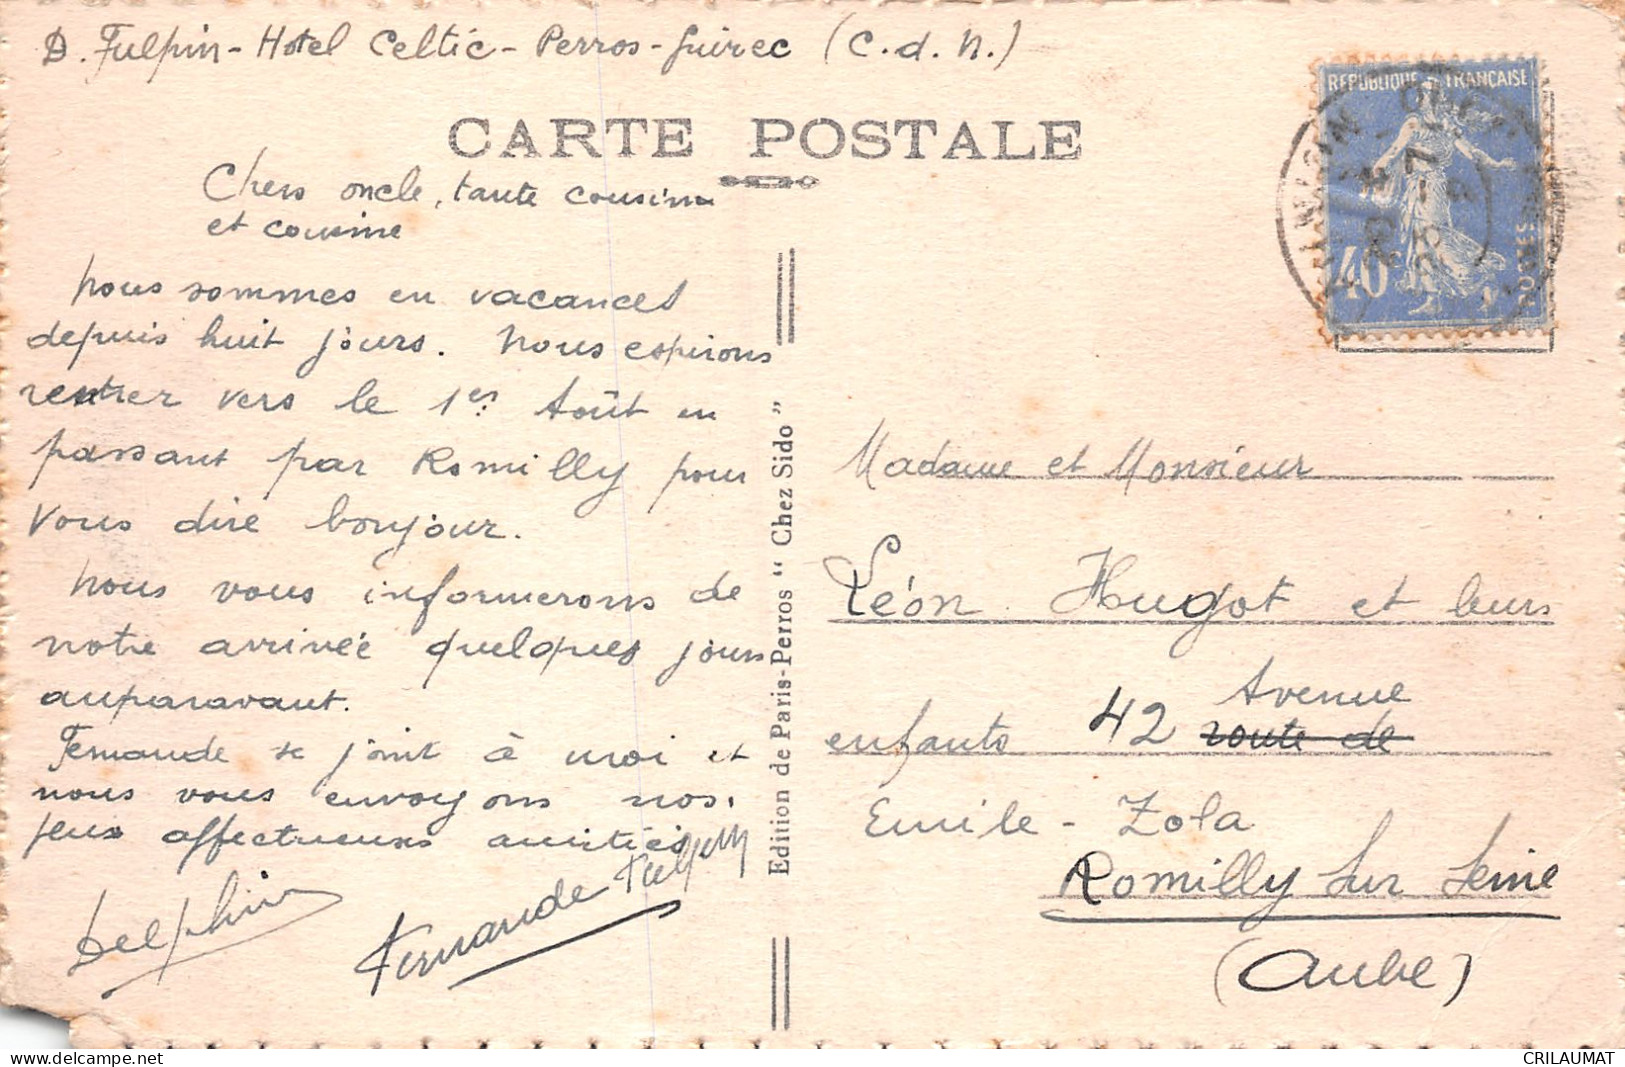 D. Fulpin - Hotel Celtic - Perros - Guirec (C. d. N.)
CARTE POSTALE
Chers oncle, tante cousins
et cousine
Nous sommes en vacances
depuis huit jours. Nous espérons
rentrer vers le 1er Août en
passant par Romilly pour
vous dire bonjour.
Nous vous informerons de
notre arrivée quelques jours
auparavant.
Fernande se joint à moi et
nous vous envoyons nos.
plus affectueuses amitiés
Delphin
Fernande Fulpin
Edition de Paris-Perros "Chez Sido"
REPUBLIQUE FRANÇAISE
40c
POSTES
23 - 7
Madame et Monsieur
Léon Hugot et leurs
enfants 42 Avenue
route de
Emile - Zola
Romilly Sur Seine
(Aube)
CRILAUMAT
www.delcampe.net